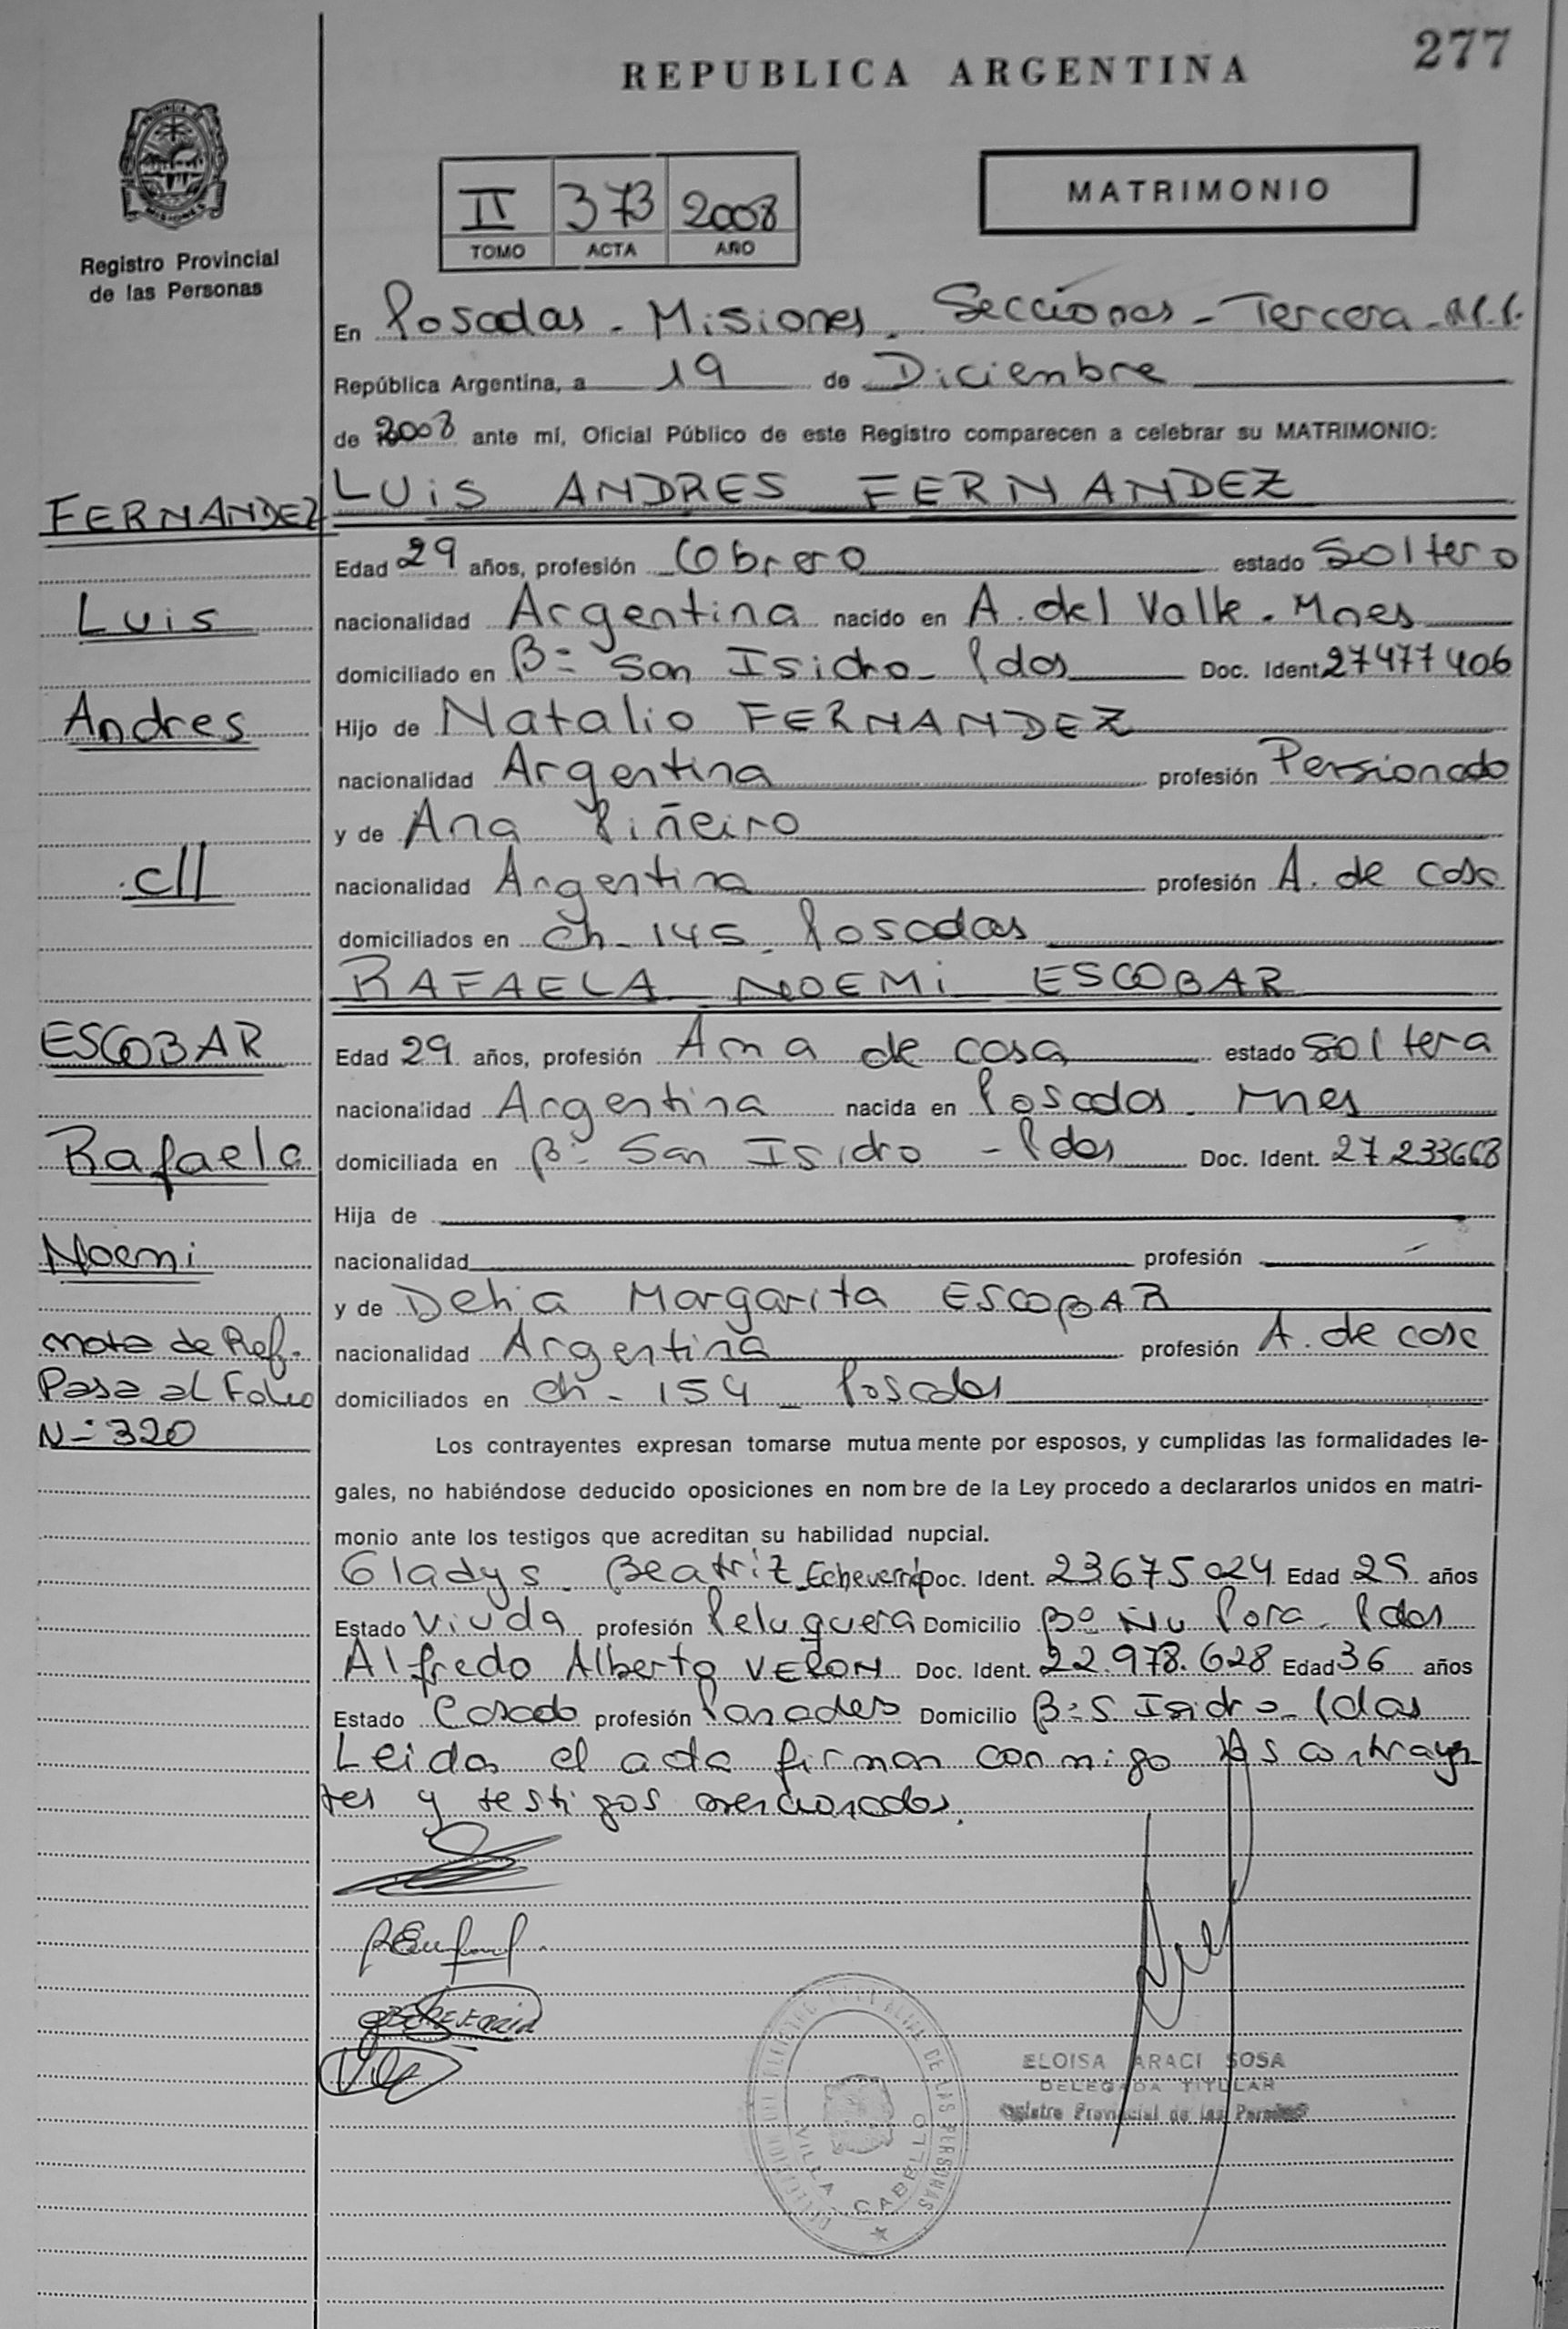 277
REPUBLICA ARGENTINA
Registro Provincial
de las Personas
II 373 2008
TOMO ACTA AÑO
MATRIMONIO
En Posadas - Misiones. Secciones - Tercera
República Argentina, a 19 de Diciembre
de 2008 ante mí, Oficial Público de este Registro comparecen a celebrar su MATRIMONIO:
LUiS ANDRES FERNANDEZ
FERNANDEZ
Edad 29 años, profesión Obrero estado Soltero
Luis
nacionalidad Argentina nacido en A. del Valle - Mnes
domiciliado en Bº San Isidro - Pdas Doc. Ident. 27477406
Andres
Hijo de Natalio FERNANDEZ
nacionalidad Argentina profesión Pensionado
y de Ana Piñeiro
c//
nacionalidad Argentina profesión A. de casa
domiciliados en Ch - 145 - Posadas
RAFAELA NOEMi ESCOBAR
ESCOBAR
Edad 29 años, profesión Ama de casa estado Soltera
nacionalidad Argentina nacida en Posadas - Mnes
Rafaela
domiciliada en Bº San Isidro - Pdas Doc. Ident. 27 233668
Hija de
Noemi
nacionalidad profesión
y de Delia Margarita ESCOBAR
nota de Ref.
nacionalidad Argentina profesión A. de casa
Pasa al Folio
domiciliados en Ch - 154 - Posadas
Nº 320
Los contrayentes expresan tomarse mutua mente por esposos, y cumplidas las formalidades le-
gales, no habiéndose deducido oposiciones en nom bre de la Ley procedo a declararlos unidos en matri-
monio ante los testigos que acreditan su habilidad nupcial.
Gladys Beatriz Echeverria Doc. Ident. 23675024 Edad 25 años
Estado Viuda profesión Peluquera Domicilio Bº Ñu Pora - Pdas
Alfredo Alberto VERON Doc. Ident. 22.978.628 Edad 36 años
Estado Casado profesión Panadero Domicilio Bº S. Isidro - Pdas
Leida el acta firman conmigo los contrayen
tes y testigos mencionados.
ELOISA ARACI SOSA
DELEGADA TITULAR
Registro Provincial de las Personas
DE LAS PERSONAS
VILLA CABELLO